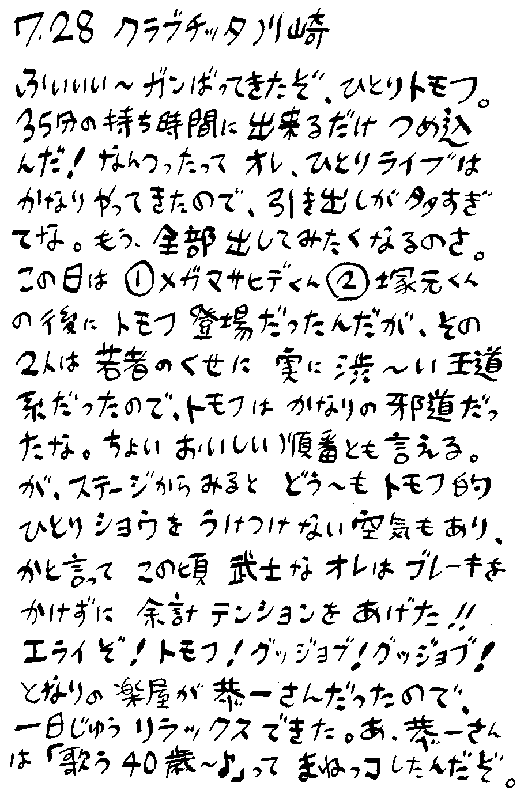 7.28 クラブチッタ川崎
ふぃいいい〜ガンばってきたぞ、ひとりトモフ。
35分の持ち時間に出来るだけつめ込
んだ!なんつったってオレ、ひとりライブは
かなりやってきたので、引き出しが多すぎ
てな。もう、全部出してみたくなるのさ。
この日は①メガマサヒデくん②塚元くん
の後にトモフ登場だったんだが、その
2人は若者のくせに実に渋〜い王道
系だったので、トモフはかなりの邪道だっ
たな。ちょいおいしい順番とも言える。
が、ステージからみるとどう〜もトモフ的
ひとりショウをうけつけない空気もあり、
かと言ってこの頃武士なオレはブレーキを
かけずに余計テンションをあげた!!
エライぞ!トモフ!グッジョブ!グッジョブ!
となりの楽屋が恭一さんだったので、
一日じゅうリラックスできた。あ、恭一さん
は「歌う40歳〜♪」ってまねっコしたんだぞ。